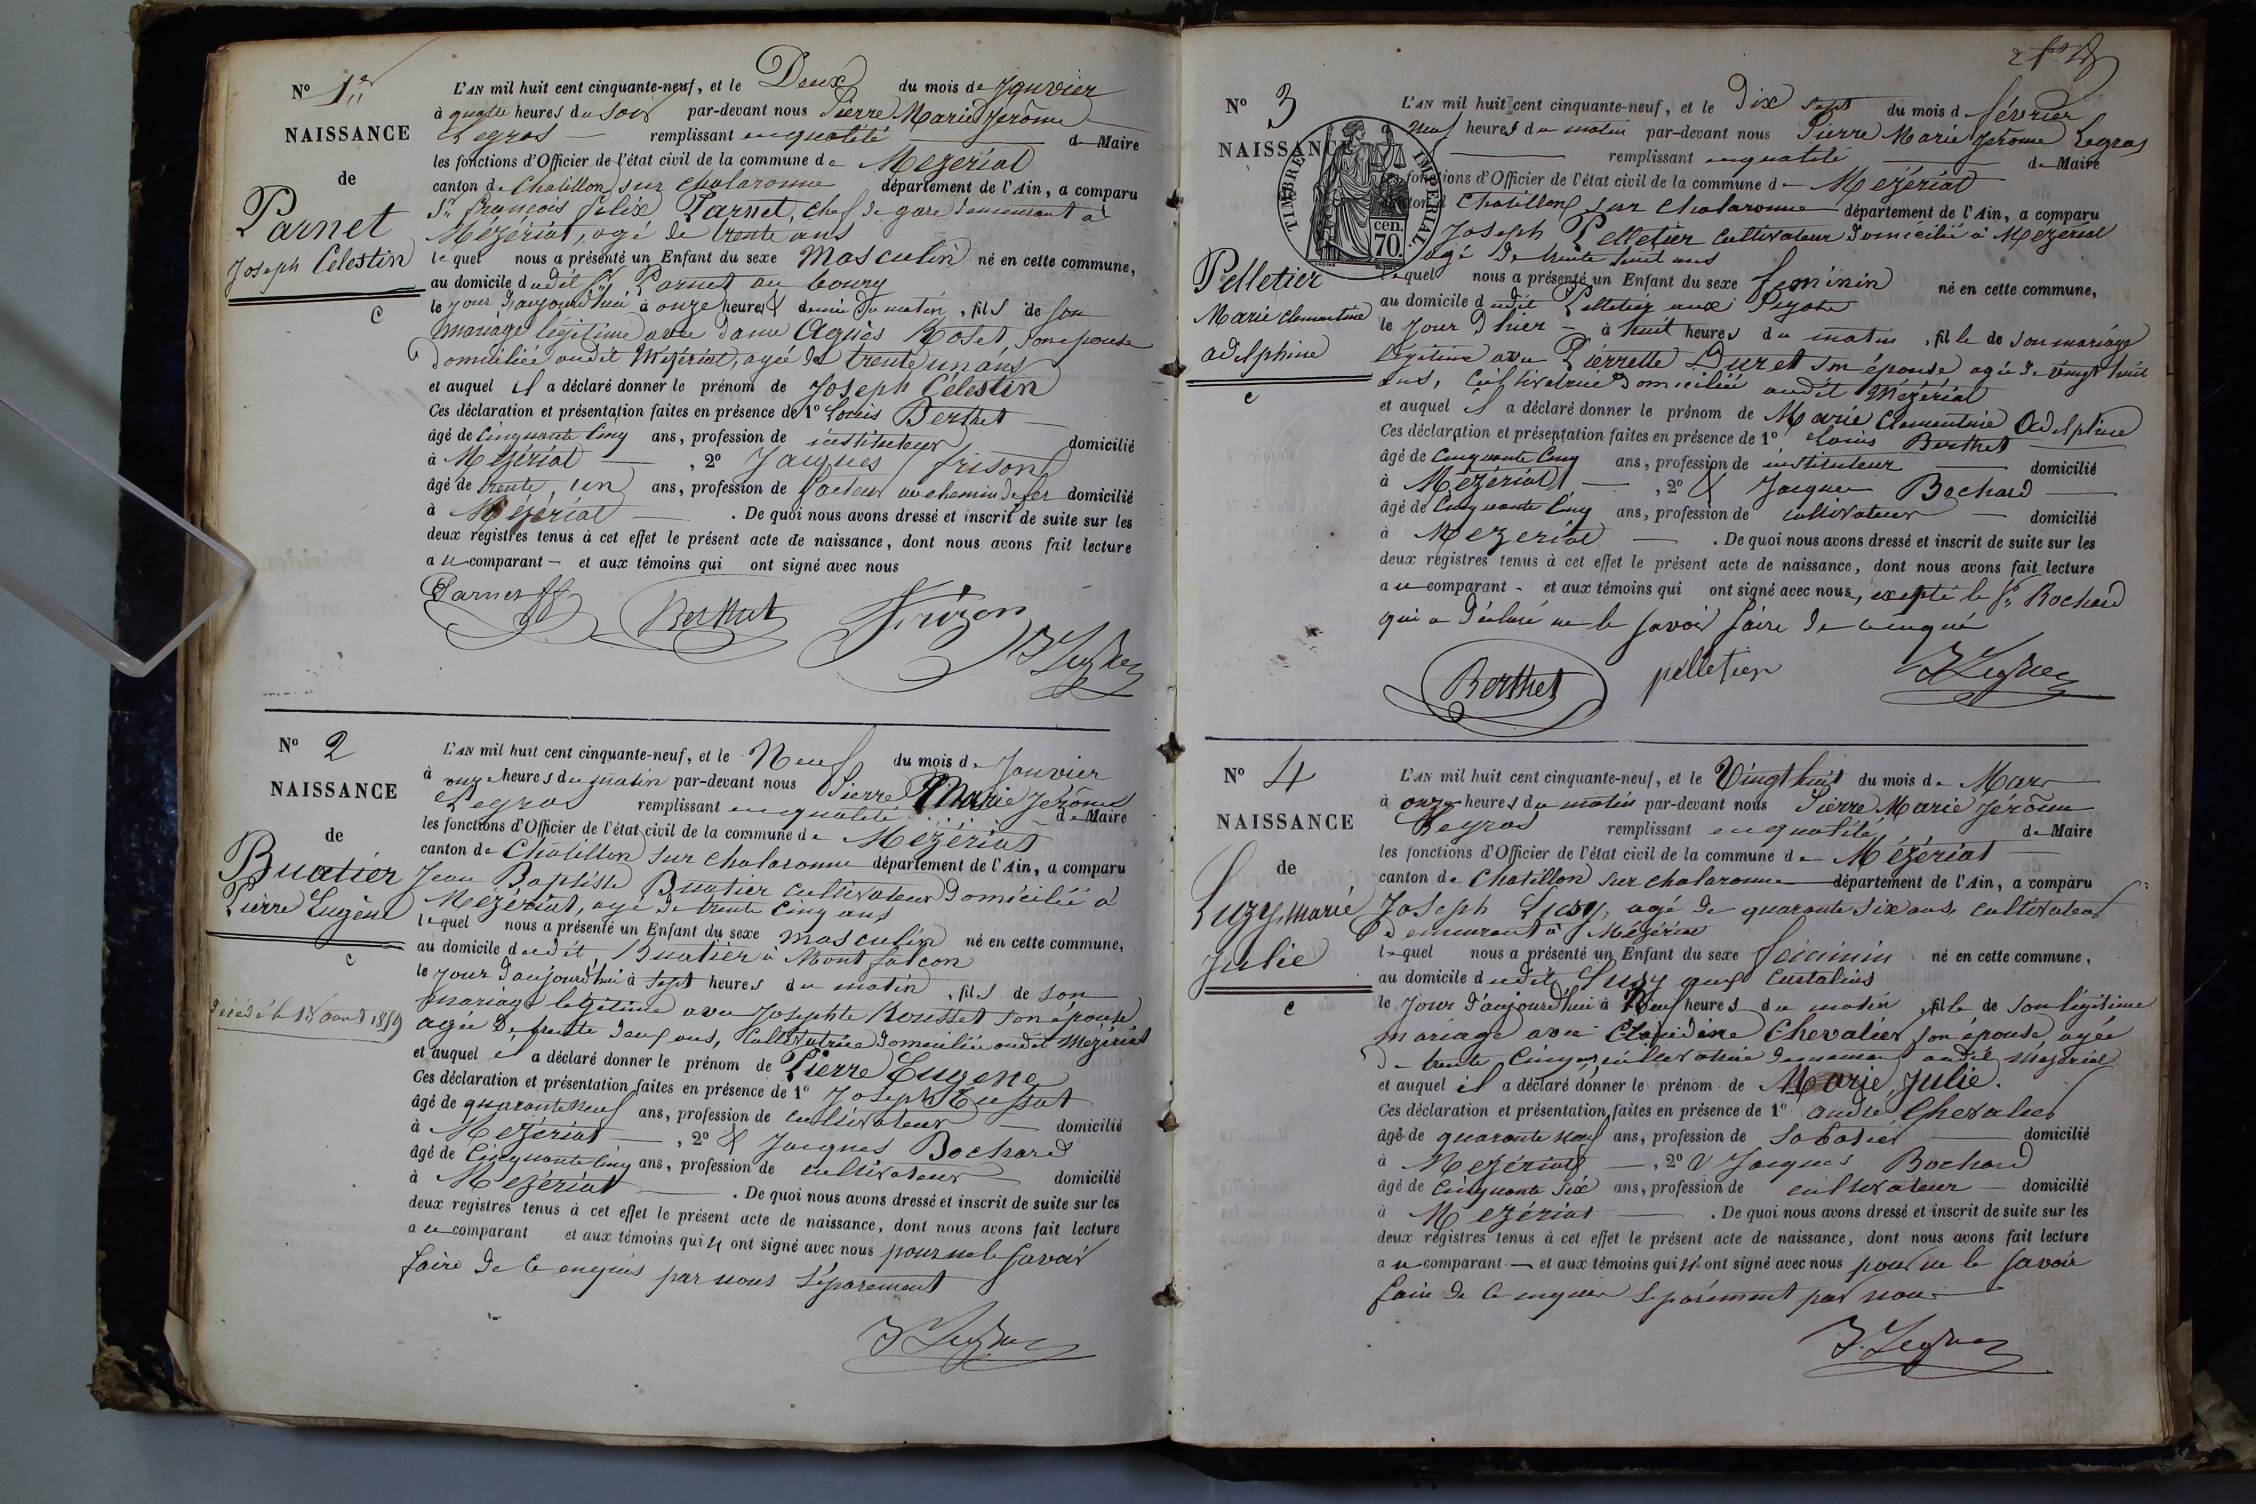 No 1er
NAISSANCE
de
Parnet
Joseph Célestin
C
L'AN mil huit cent cinquante-neuf, et le Deux du mois de Janvier
à quatre heures du soir par-devant nous Pierre Marie Jerôme
Legros remplissant en qualité de Maire
les fonctions d'Officier de l'état civil de la commune de Mézériat
canton de Chatillon sur chalaronne département de l'Ain, a comparu
Sr françois félix Parnet, chef de gare demeurant à
Mézériat, agé de trente ans
lequel nous a présenté un Enfant du sexe Masculin né en cette commune,
au domicile dudit Sr Parnet au bourg
le jour d'aujourd'hui à onze heures & demie du matin, fils de son
mariage légitime avec dame Agnès Roset, son épouse
domiciliée audit Mézériat, agée de trente un ans
et auquel il a déclaré donner le prénom de Joseph Célestin
Ces déclaration et présentation faites en présence de 1o Louis Berthet
âgé de Cinquante Cinq ans, profession de instituteur domicilié
à Mézériat, 2o Jacques frison
âgé de trente un ans, profession de facteur au chemin de fer domicilié
à Mézériat. De quoi nous avons dressé et inscrit de suite sur les
deux registres tenus à cet effet le présent acte de naissance, dont nous avons fait lecture
au comparant et aux témoins qui ont signé avec nous
Parnet Berthet Frizon
J Legros
No 2
NAISSANCE
de
Buatier
Pierre Eugène
C
Décédé le 1er aout 1859
L'AN mil huit cent cinquante-neuf, et le Neuf du mois de Janvier
à onze heures du matin par-devant nous Pierre Marie Jerôme
Legros remplissant en qualité de Maire
les fonctions d'Officier de l'état civil de la commune de Mézériat
canton de Châtillon sur chalaronne département de l'Ain, a comparu
Jean Baptiste Buatier cultivateur domicilié à
Mézériat, agé de trente Cinq ans
lequel nous a présenté un Enfant du sexe masculin né en cette commune,
au domicile dudit Buatier à Mont falcon
le jour d'aujourd'hui à sept heures du matin, fils de son
mariage légitime avec Josephte Rousset son épouse
agée de trente deux ans, Cultivatrice domiciliée audit Mézériat
et auquel il a déclaré donner le prénom de Pierre Eugene
Ces déclaration et présentation faites en présence de 1o Joseph
âgé de quarante neuf ans, profession de cultivateur domicilié
à Mézériat, 2o & Jacques Bochard
âgé de Cinquante Cinq ans, profession de cultivateur domicilié
à Mézériat. De quoi nous avons dressé et inscrit de suite sur les
deux registres tenus à cet effet le présent acte de naissance, dont nous avons fait lecture
au comparant et aux témoins qui n' ont signé avec nous pour ne le savoir
faire de ce enquis par nous séparement
J Legros
No 3
NAISSANCE
Pelletier
Marie Clementine
adelphine
C
TIMBRE IMPERIAL.
70 cen.
L'AN mil huit cent cinquante-neuf, et le Dix sept du mois d février
neuf heures du matin par-devant nous Pierre Marie Jerôme Legros
remplissant en qualité de Maire
les fonctions d'Officier de l'état civil de la commune de Mézériat
canton d Chatillon sur chalaronne département de l'Ain, a comparu
Joseph Pelletier cultivateur domicilié à Mézériat
agé de trente huit ans
lequel nous a présenté un Enfant du sexe féminin né en cette commune,
au domicile dudit Pelletier aux
le jour d'hier à huit heures du matin, fille de son mariage
légitime avec Pierrette Duret son épouse agée de vingt huit
ans, Cultivatrice domiciliée audit Mézériat
et auquel il a déclaré donner le prénom de Marie Clementine Adelphine
Ces déclaration et présentation faites en présence de 1o Louis Berthet
âgé de Cinquante Cinq ans, profession de instituteur domicilié
à Mézériat, 2o & Jacques Bochard
âgé de Cinquante Cinq ans, profession de cultivateur domicilié
à Mézériat. De quoi nous avons dressé et inscrit de suite sur les
deux registres tenus à cet effet le présent acte de naissance, dont nous avons fait lecture
au comparant et aux témoins qui ont signé avec nous, excepté le Sr Bochard
qui a déclaré ne le savoir faire de ce enquis
Berthet pelletier J Legros
No 4
NAISSANCE
de
Luzy, marie
Julie
C
L'AN mil huit cent cinquante-neuf, et le Vingt huit du mois de Mars
à onze heures du matin par-devant nous Pierre Marie Jérôme
Legros remplissant en qualité de Maire
les fonctions d'Officier de l'état civil de la commune de Mézériat
canton de Chatillon sur chalaronne département de l'Ain, a comparu
Joseph Luzy, agé de quarante six ans, cultivateur
demeurant à Mézériat
lequel nous a présenté un Enfant du sexe féminin né en cette commune,
au domicile dudit Luzy aux
le jour d'aujourd'hui à Neuf heures du matin, fille de son légitime
mariage avec Claudine Chevalier son épouse, agée
de trente Cinq ans, cultivatrice demeurant audit Mézériat
et auquel il a déclaré donner le prénom de Marie Julie.
Ces déclaration et présentation faites en présence de 1o andré Chevalier
âgé de quarante neuf ans, profession de Sabotier domicilié
à Mézériat, 2o & Jacques Bochard
âgé de Cinquante Six ans, profession de cultivateur domicilié
à Mézériat. De quoi nous avons dressé et inscrit de suite sur les
deux registres tenus à cet effet le présent acte de naissance, dont nous avons fait lecture
au comparant et aux témoins qui n' ont signé avec nous pour ne le savoir
faire de ce enquis séparément par nous
J. Legros